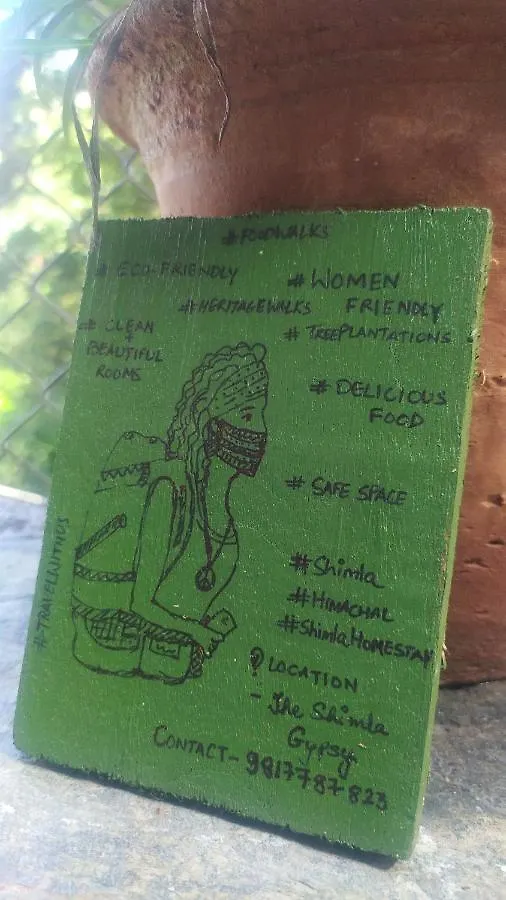 #FOODWALKS
# ECO-FRIENDLY
# WOMEN
FRIENDLY
#HERITAGEWALKS
# TREEPLANTATIONS
# CLEAN
+
BEAUTIFUL
ROOMS
# DELICIOUS
FOOD
# SAFE SPACE
#Shimla
#HIMACHAL
#ShimlaHOMESTAY
#TRAVELWITHUS
LOCATION
- The Shimla
Gypsy
CONTACT- 9817787823